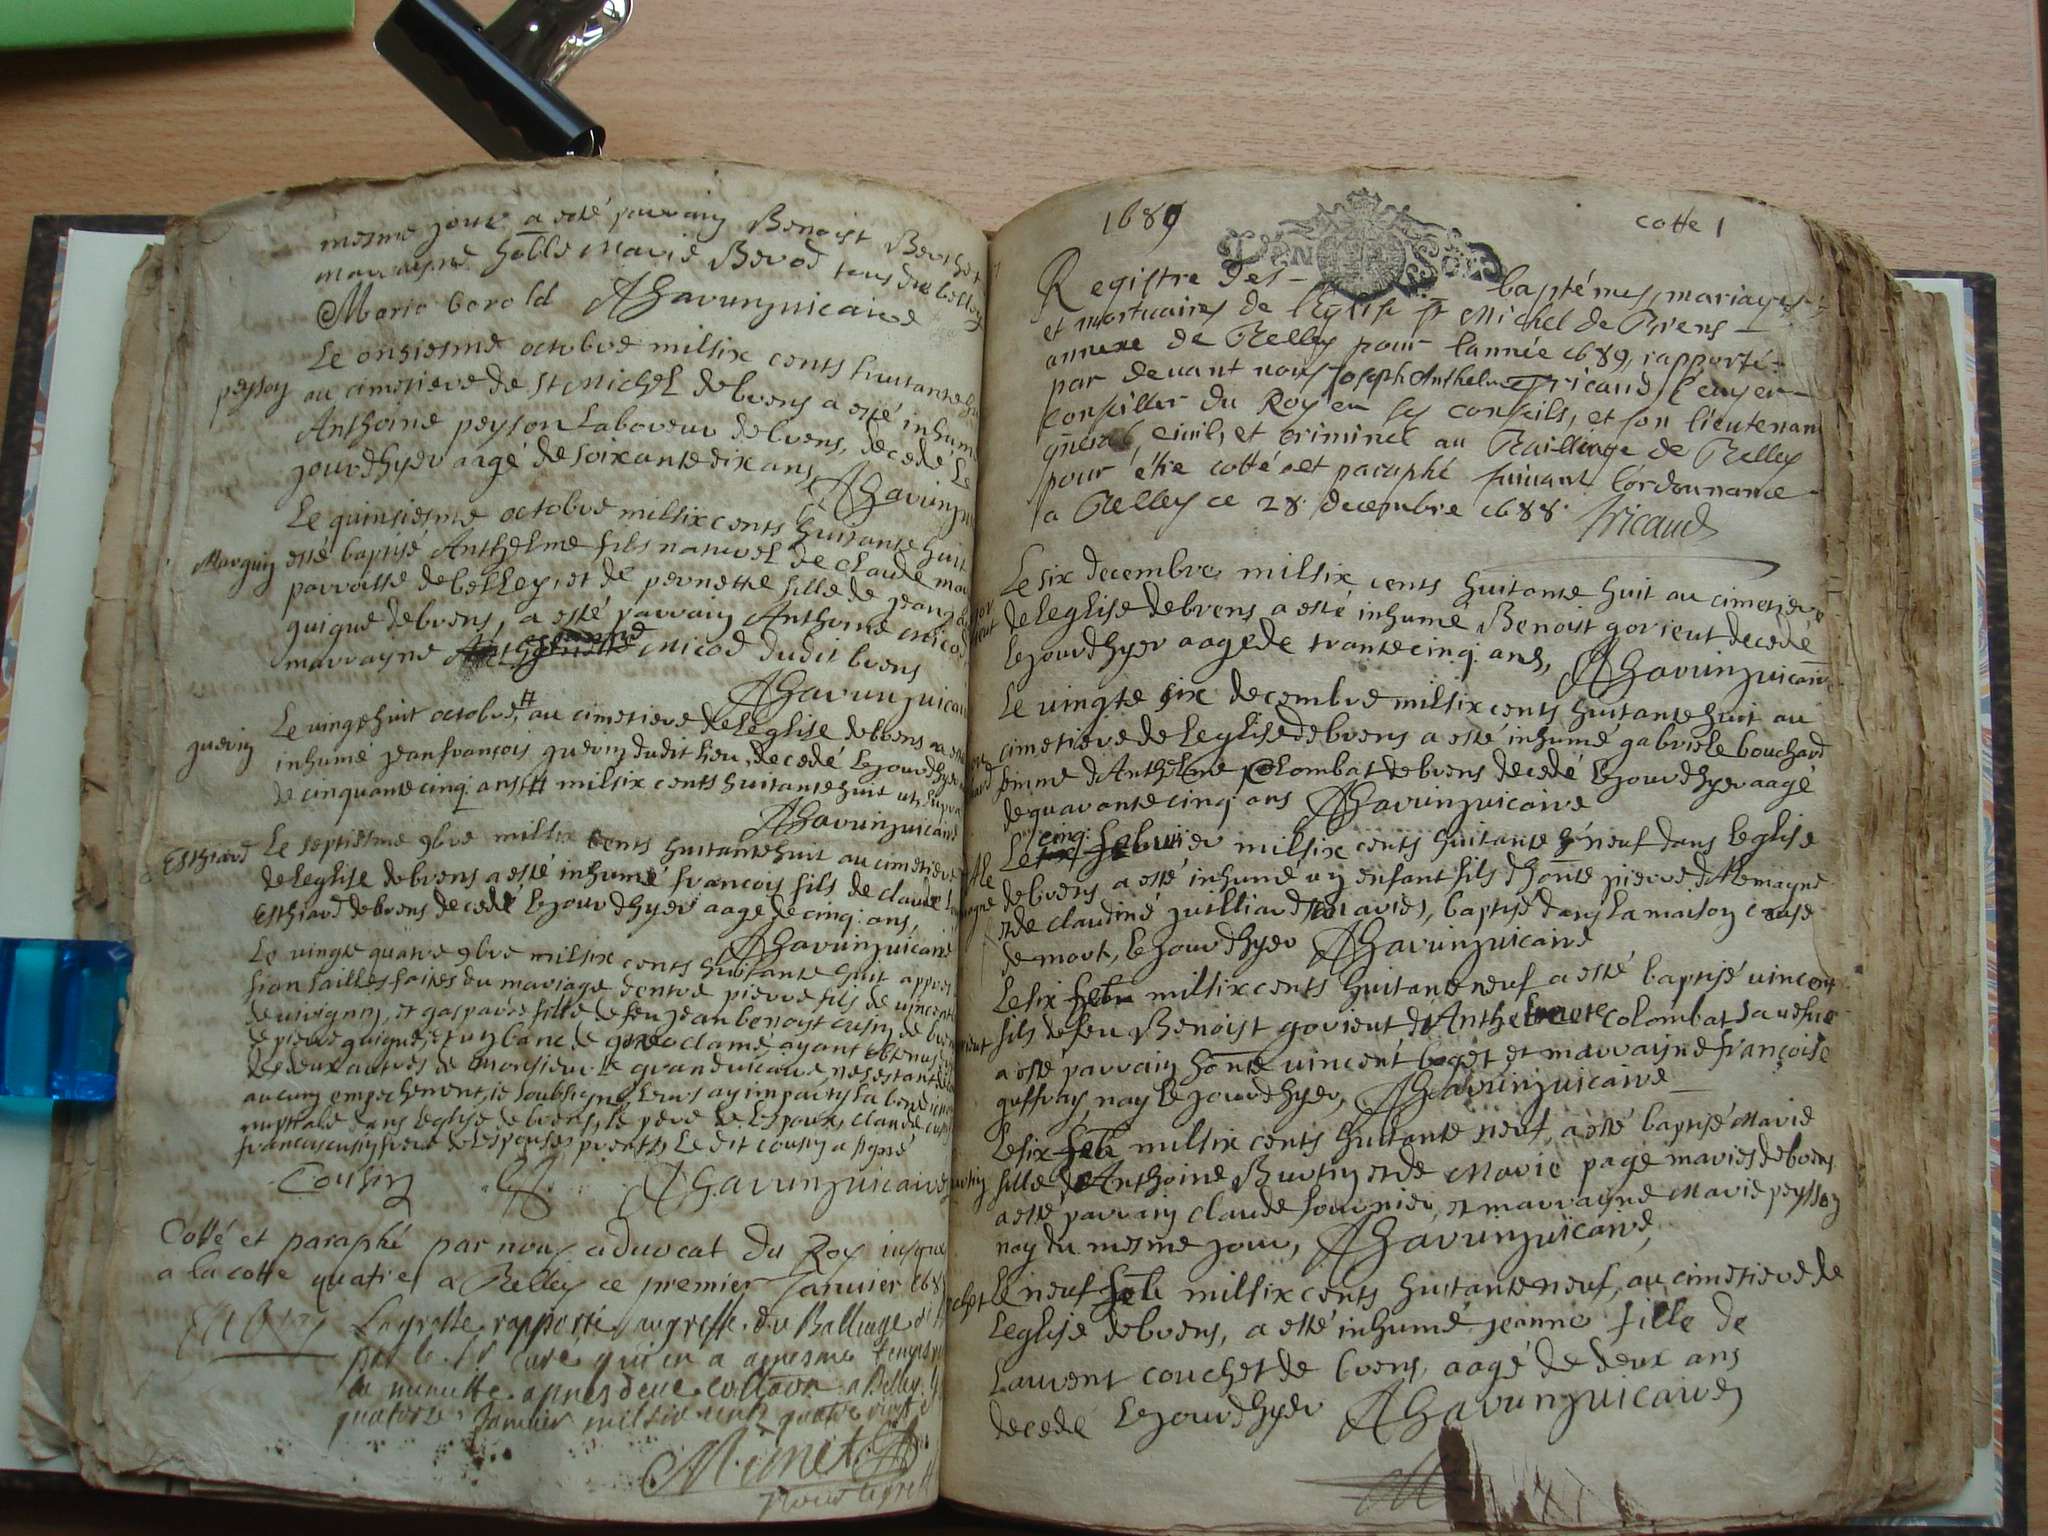 mesme jour a esté parrain Benoist Berthet
marrayne holle Marie Berod tous de belley
Marie berold AHavunz vicaire
Le onsiesme octobre milsix cents huitante hu
peyson au cimetiere de St Michel de brens a esté inhumé
Anthoine peyson Laboreur de brens, decedé Le
jourdhyer aagé de soixante dix ans,
Le quinsiesme octobre milsix cents huitante huit
Marguin esté baptisé Anthelme fils naturel de Claude mar
parroisse de belley, et de pernette fille de jean
guigue de brens, a esté parrain Anthoine Nicod
marrayne Nicod dudit brens
AHavunz vicai
Le vingt huit octobre, # au cimetiere de Leglise de brens a esté
guerin inhumé jean françois guerin dudit lieu, decedé Le jourdhyer
de cinquante cinq ans # milsix cents huitante huit ut supra
AHavunz vicaire
Esthiard Le septiesme 9bre milsix cents huitante huit au cimetiere
de Leglise de brens a esté inhumé françois fils de claude
Esthiard de brens decedé Le jourdhyer aagé de cinq ans,
AHavunz vicaire
Le vingte quatre 9bre milsix cents huitante huit apres
fiansailles faites du mariage dentre pierre fils de vincent
de pierre guigue, et un banc de proclamé ayant obtenus
des deux autres de Monsieur Le grand vicaire nes estant
aucung empechement, je soubsigne Leurs ay imparty La benedi
nuptiale dans Leglise de brens, Le pere de Lespoux, claude
françois cusin frere de Lespouse presents Le dit cousin a signé
Cousin AHavunz vicaire
Cotté et paraphé par nous aduocat du Roy jusque
a la cotte quatre a Belley ce premier Januier 168
La grosse rapportée au greffe du Balliage d
par le Sr curé qui en a
la minutte apres deue collaon a Belley
quatorze Januier milsix cents quatre vingt
Minet
1689
cotte 1
Registre des baptémes, mariages
et mortuaires de l'Eglise St Michel de Brens
annexe de Belley pour l'année 1689, rapporté
par deuant nous Joseph Anthelme Tricaud Ecuyer
Conseiller du Roy en ses conseils, et son lieutenant
gñeral, ciuil, et criminel au Bailliage de Belley
pour être cotté et paraphé suiuant l'ordonnance
a Belley ce 28 decembre 1688 Tricaud
Le six decembre milsix cents huitante huit au cimetiere
de Leglise de brens a esté inhumé Benoist gorient decedé
Le jourdhyer aagé de trante cinq ans, AHavunz vicaire
Le vingte six decembre milsix cents huitante huit au
cimetiere de Leglise de brens a esté inhumé gabriele bouchard
femme dAnthelme Colombat de brens decedé Le jourdhyer aagé
de quarante cinq ans AHavunz vicaire
Le cinq feburier milsix cents huitante neuf dans Leglise
de brens a esté inhumé un enfant fils dhonte pierre dAlemagne
et de claudine juilliard mariés, baptisé dans La maison cause
de mort, Le jourdhyer AHavunz vicaire
Le six feb milsix cents huitante neuf a esté baptisé vincent
fils de feu Benoist gorient et dAnthelmete Colombat sa vefue
a esté parrain honte vincent boget et marrayne françoise
guffray, nay Le jourdhyer, AHavunz vicaire
Le six feb milsix cents huitante neuf, a esté baptisé Marie
fille dAnthoine Burtin et de Marie page mariés de brens
a esté parrain claude fournier, et marrayne Marie peysson
nay du mesme jour, AHavunz vicaire,
Le neuf feb milsix cents huitante neuf, au cimetiere de
Leglise de brens, a esté inhumé jeanne fille de
Laurent couchet de brens, aagé de deux ans
decedé Le jourdhyer AHavunz vicaire